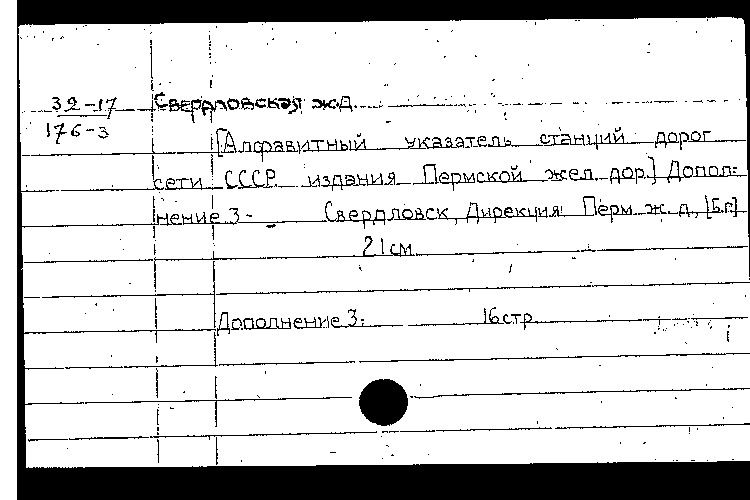 32-17
176-3
Свердловская ж.д.
[Алфавитный указатель станций дорог
сети СССР издания Пермской жел. дор.] Допол=
нение 3- Свердловск, Дирекция Перм. ж. д., [Б.г.]
21 см.
Дополнение 3. 16 стр.